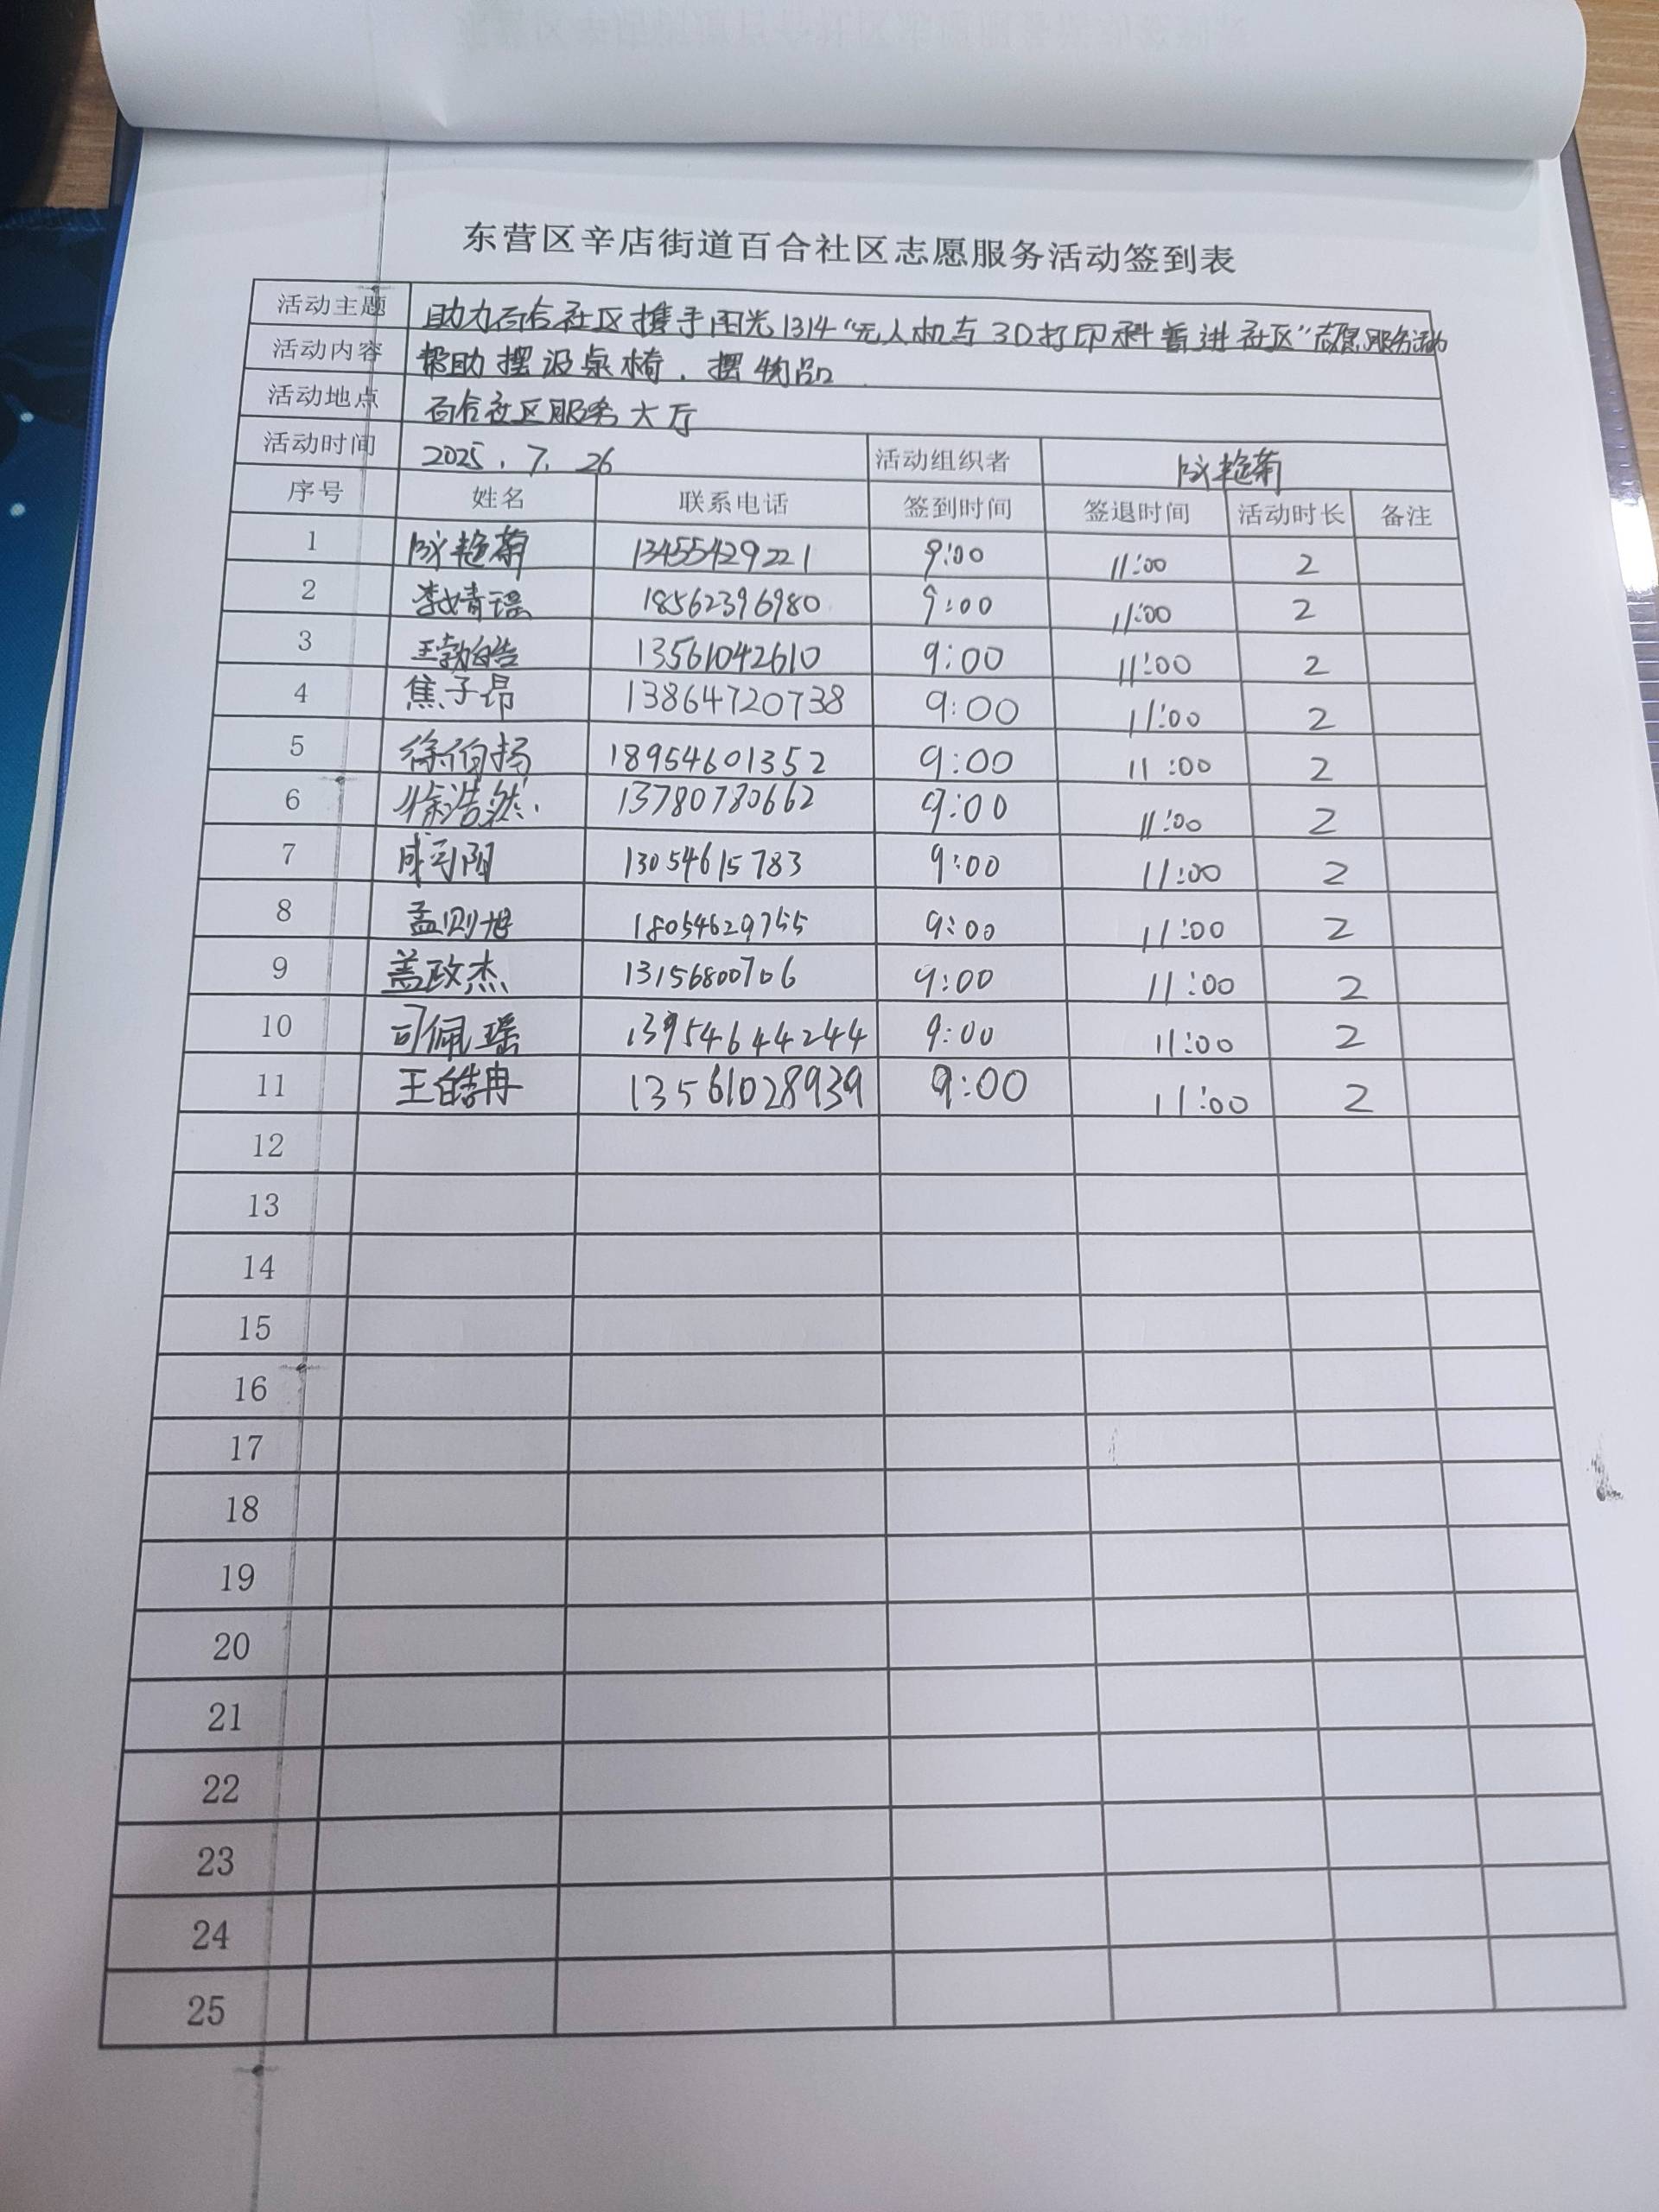 东营区辛店街道百合社区志愿服务活动签到表
活动主题 助力百合社区携手阳光1314“无人机与3D打印科普进社区”志愿服务活动
活动内容 帮助摆设桌椅、摆物品
活动地点 百合社区服务大厅
活动时间 2025.7.26 活动组织者 艳菊
序号 姓名 联系电话 签到时间 签退时间 活动时长 备注
1 艳菊 13455429221 9:00 11:00 2
2 李婧瑶 18562396980 9:00 11:00 2
3 王勃皓 13561042610 9:00 11:00 2
4 焦子昂 13864720738 9:00 11:00 2
5 徐伯扬 18954601352 9:00 11:00 2
6 徐浩然 13780780662 9:00 11:00 2
7 13054615783 9:00 11:00 2
8 孟则旭 18054629755 9:00 11:00 2
9 盖政杰 13156800706 9:00 11:00 2
10 司佩瑶 13954644244 9:00 11:00 2
11 王皓冉 13561028939 9:00 11:00 2
12
13
14
15
16
17
18
19
20
21
22
23
24
25